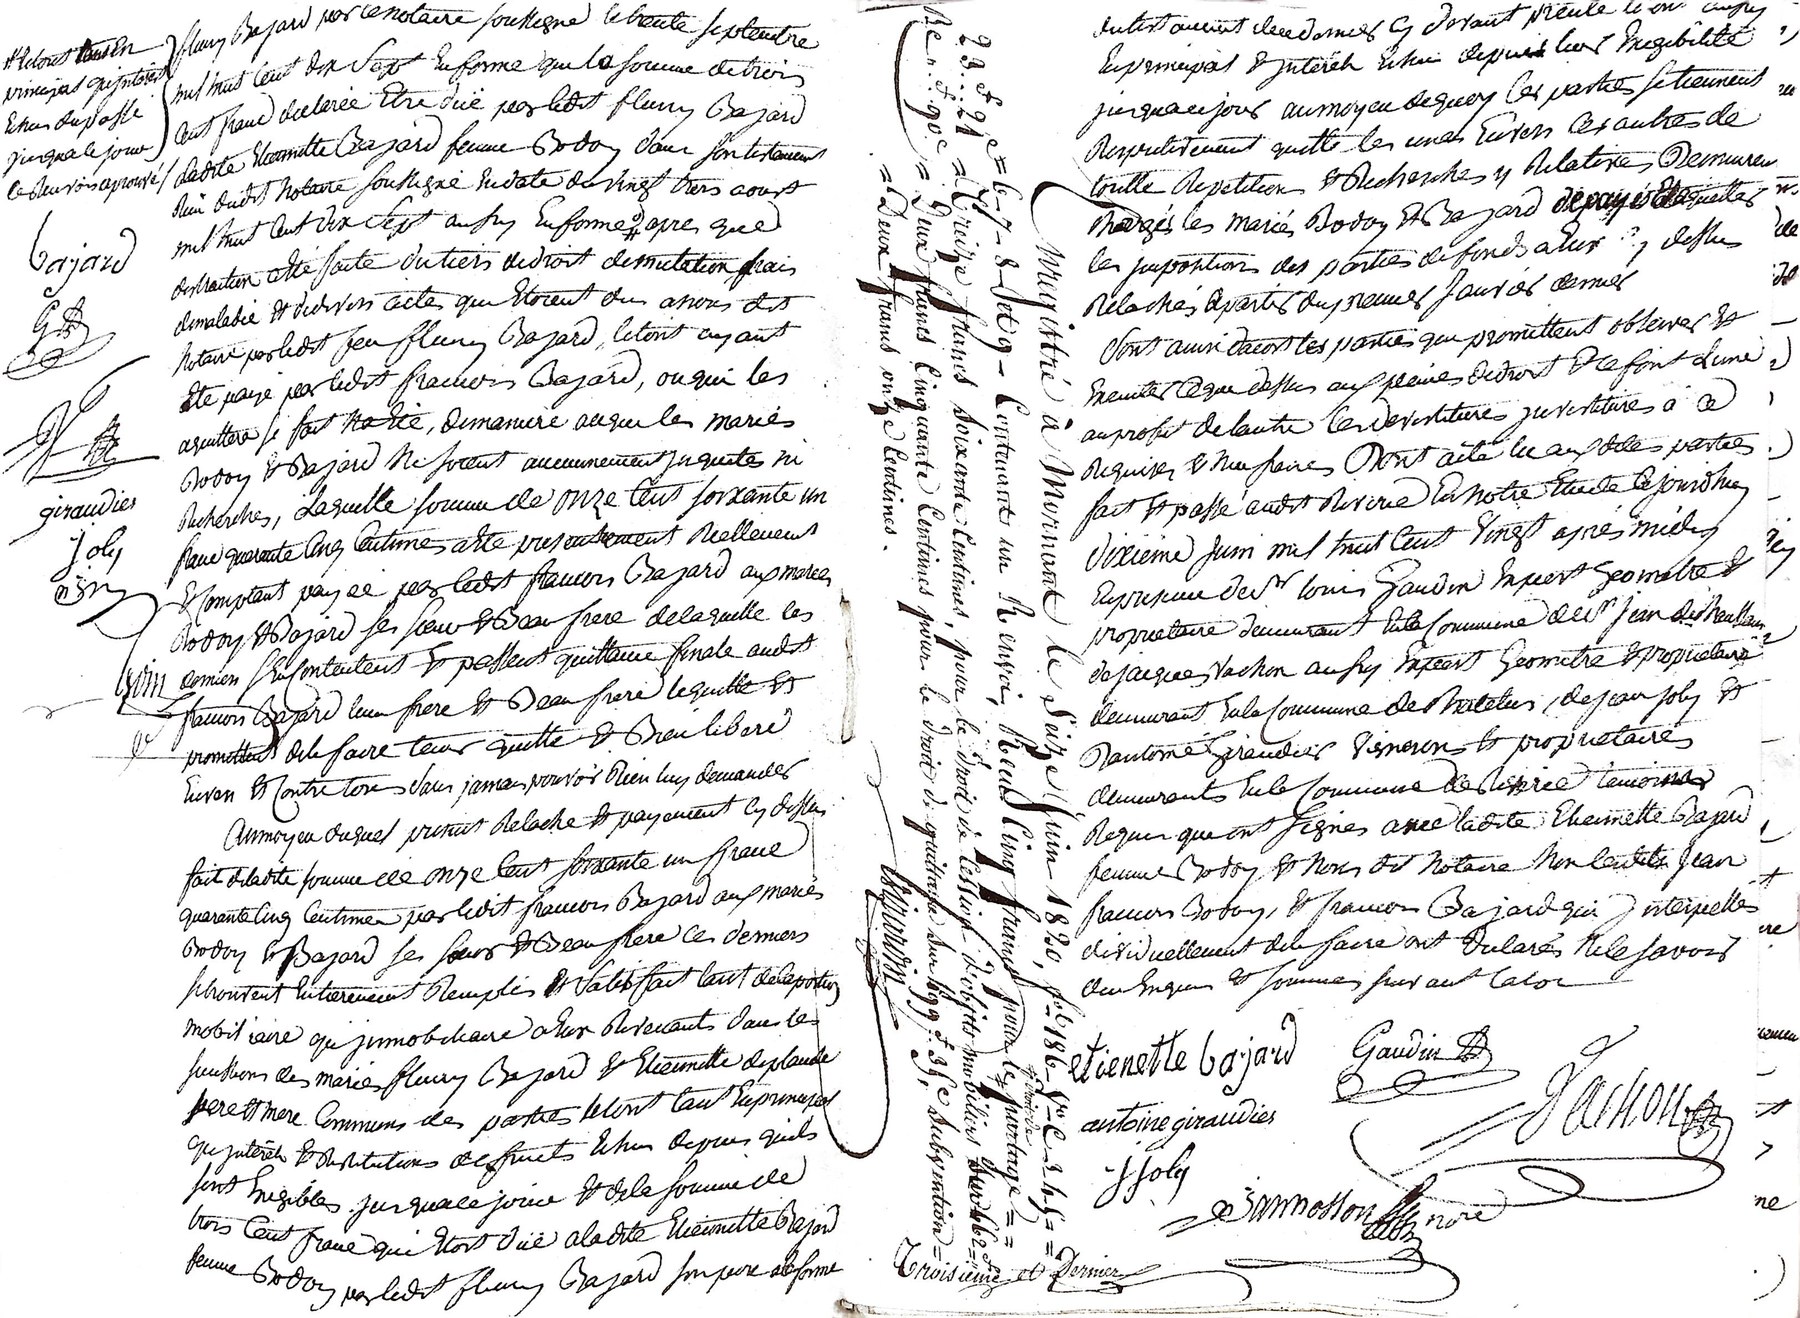 et letout tant en
principal qu'intérêts
echus du passé
jusqu'a ce jour
le renvoi aprouvé
bajard
G
V
giraudier
J joly
fleury Bajard par ce notaire soussigné le trente septembre
mil huit cent dix Sept En forme que la somme de trois
Cent franc declarée Etre düe par ledit fleury Bajard
a ladite Etiennette Bajard femme Bodoy dans son testament
Reçu dudit Notaire soussigné En date du vingt trois aoust
mil huit cent dix Sept aussy En forme apres que
distraction a Eté faite du tiers du droit de mutation, frais
de maladie et de divers actes que Etoient dus a nous dit
Notaire par ledit feu fleury Bajard, letout ayant
Eté payé par ledit francois Bajard, ou qui les
aquittera si fait N'a Eté, de maniere a ce que les mariés
Bodoy et Bajard Ne soient aucunement inquiétés ni
Recherchés, Laquelle somme de onze Cent soixante un
franc quarante Cinq Centimes a Eté presentement Reellement
et Comptant payée par ledit francois Bajard aux mariés
Bodoy et Bajard ses soeur et Beau frere de laquelle les
derniers s'En Contentent et passent quittance finale audit
francois Bajard leur frere et Beau frere lequitte et
promettent de le faire tenir quitte et Bien liberé
Envers et Contre tous sans jamais pouvoir Rien luy demander
Au moyen duquel present Relaché et payement Cy dessus
fait de ladite somme de onze Cent soixante un franc
quarante Cinq Centimes par ledit francois Bajard aux mariés
Bodoy et Bajard ses soeur et Beau frere ces derniers
se trouvent Entierement Remplis et Satisfait tant de la portion
mobiliaire qu'immobiliaire a Eux Revenants dans les
successions des mariés fleury Bajard et Etiennette deplaude
pere et mere Communs des parties letout tant En principal
qu'intérêts et Restitutions de fruits Echus depuis qu'ils
sont Exigibles jusqua ce jour et de la somme de
trois Cent franc qui Etoit düe a ladite Etiennette Bajard
femme Bodoy par ledit fleury Bajard son pere a la forme
Enregistré à Mornant le Seize Juin 1820, fo 186 Ro C 2 h 5 =
6-7-8-Et 9 - Contenant un Renvoi, Reçu Cinq francs pour le partage =
23.. f 91 c = Treize francs soixante Centimes, pour le droit de Cession d'objets mobiliers Sur 662 f
Re n. f 90 c = Deux francs Cinquante Centimes pour le droit de quittance Sur 499 f 35 c, subvention =
= Deux francs onze Centimes.
Troisieme et Dernier
du testament de ce dernier Cy devant Enoncé le tout aussy
En principal et intérêts Echus depuis leur Exigibilité
jusqua ce jour au moyen de quoy les parties se tiennent
Respectivement quitte les unes Envers les autres de
toutte Repetitions et Recherches y Relatives Demeurent
Chargés les mariés Bodoy et Bajard de payer
les impositions des parties de fonds a Eux Cy dessus
Relachés a partir du premier Janvier dernier
Sont ainsi d'acort les parties que promettent observer et
Executer Ce que dessus aux peines de droit Et se font L'une
au profit de l'autre les devestitures investitures a Ce
Requises et Necessaires Dont acte lu aux dites parties
fait et passé audit Riverie En Notre Etude Ce jourd'huy
dixieme Juin mil huit Cent Vingt aprés midy
En presence de Sr louis Gaudin Expert Geometre et
proprietaire demeurant En la Commune de St Jean
de jacques Vachon aussy Expert Geometre et proprietaire
demeurant En la Commune de, de jean joly et
D'antoine Giraudier Vignerons et proprietaires
demeurants En la Commune de Riverie temoins
Requis que ont signés avec ladite Etiennette Bajard
femme Bodoy et Nous dit Notaire Non lesdits jean
francois Bodoy, et francois Bajard qui interpellés
dividuellement de le faire ont declarés Ne le savoir
de ce Enquis et sommés suivant la loi
etienette bajard
Gaudin
antoine giraudier
Vachon
J joly
Bannosson nore